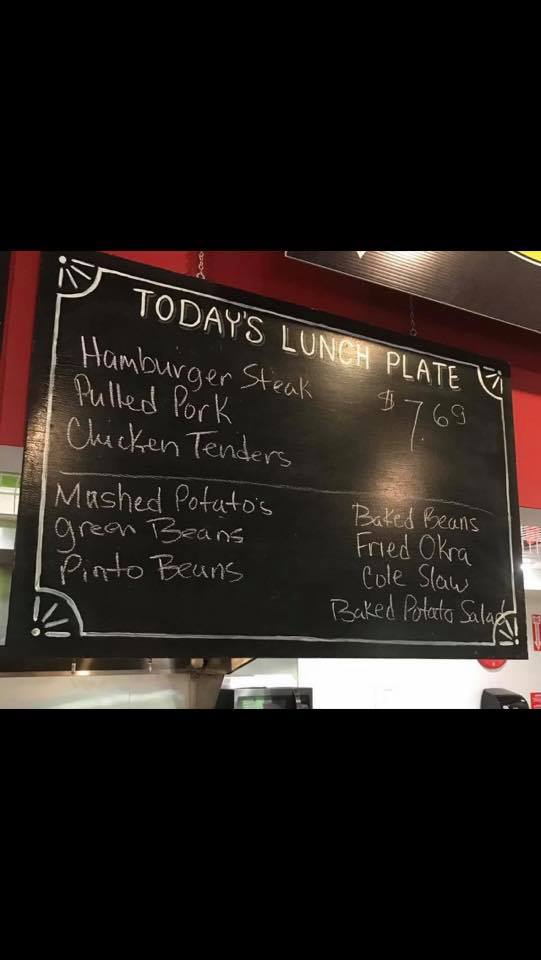 TODAY'S LUNCH PLATE
Hamburger Steak
Pulled Pork
Chicken Tenders
$7.69
Mashed Potato's
green Beans
Pinto Beans
Baked Beans
Fried Okra
Cole Slaw
Baked Potato Salad